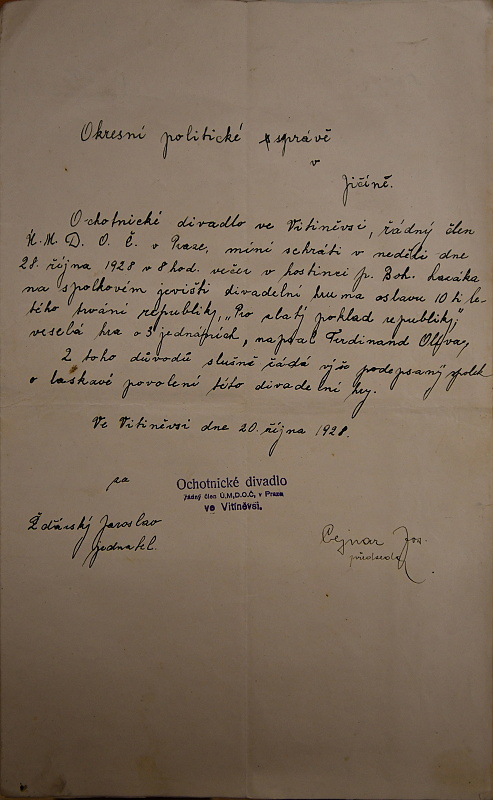 Okresní politické správě
v
Jičíně.
Ochotnické divadlo ve Vitiněvsi, řádný člen
Ú. M. D. O. Č. v Praze, míní sehráti v neděli dne
28. října 1928 v 8 hod. večer v hostinci p. Boh.
na spolkovém jevišti divadelní hru na oslavu 10 ti le-
tého trvání republiky, „Pro zlatý poklad republiky"
veselá hra o 3 jednáních, napsal Ferdinand Oliva,
Z toho důvodů slušně žádá výše podepsaný spolek
o laskavé povolení této divadelní hry.
Ve Vitiněvsi dne 20. října 1928.
za
Ochotnické divadlo
řádný člen Ú.M.D.O.Č. v Praze
ve Vitiněvsi.
Žďárský Jaroslav
jednatel.
Cejnar Jos.
předseda